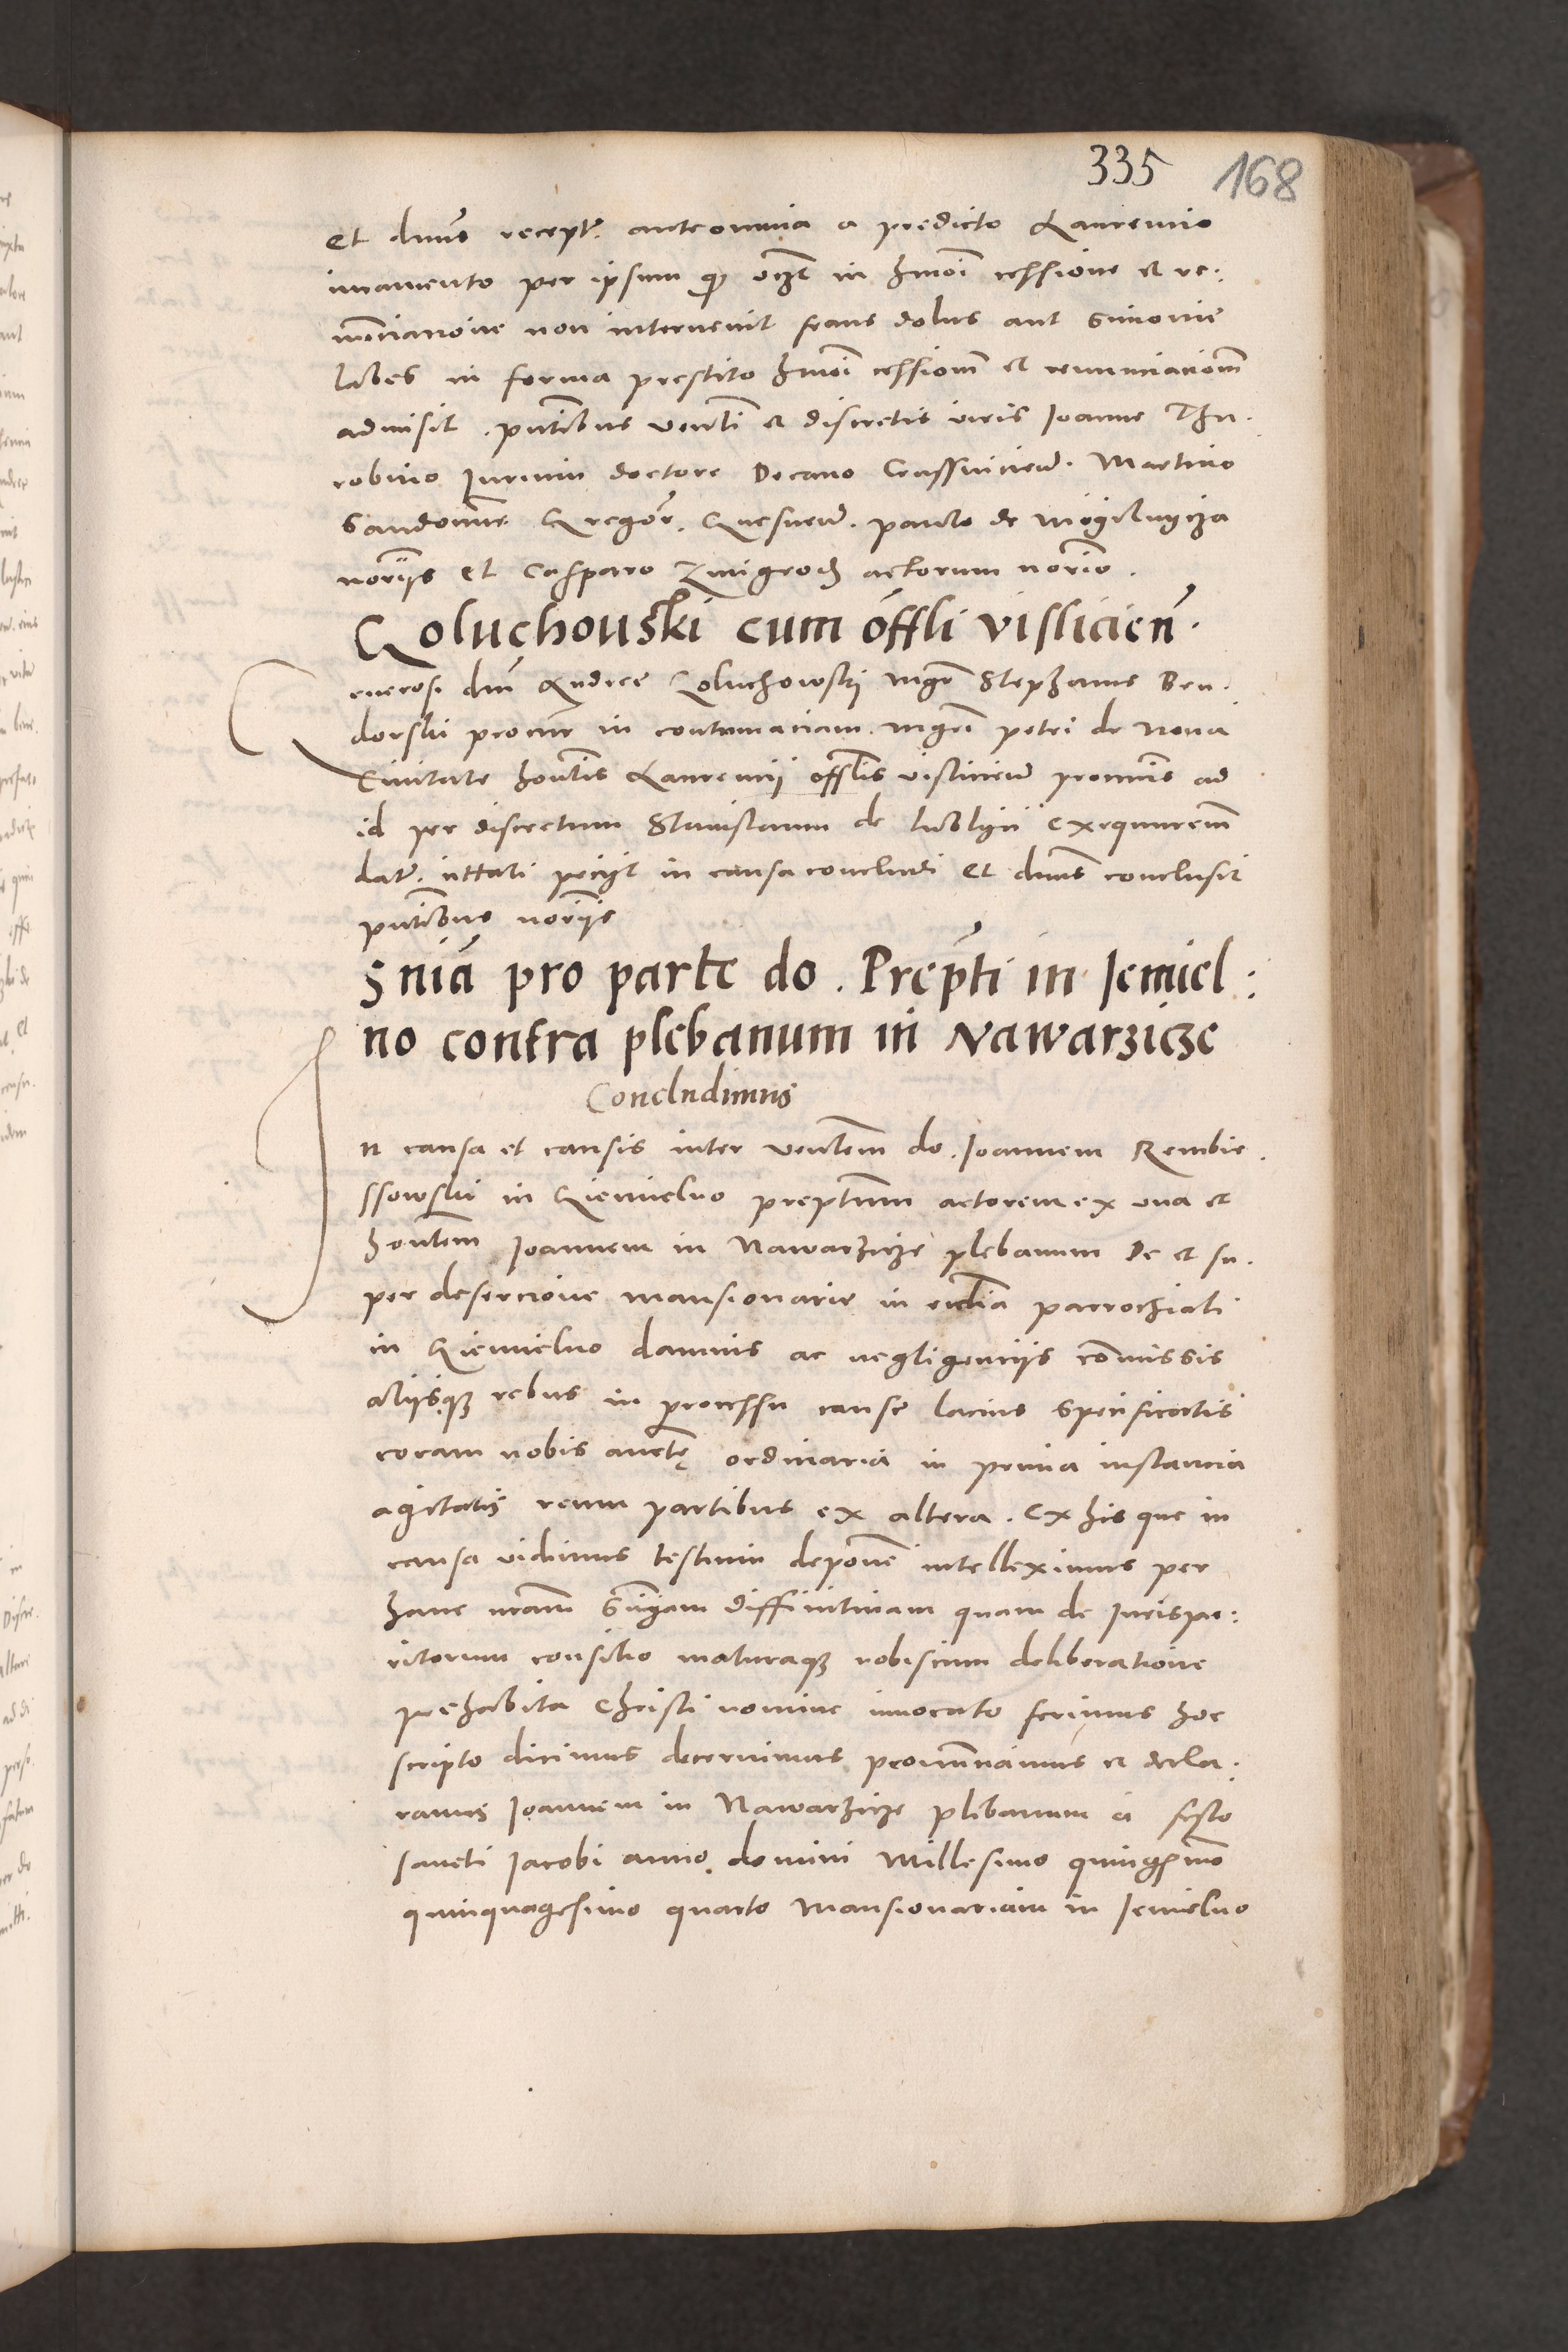 335 168
et dnus recept. ante omnia a predicto Laurencio
iuramento per ipsum q in hmoi cessione et re.
nunciatione non intervenit fraus dolus aut simonie
labes in forma prestito hmoi cessionem et renunciacionem
admisit. pntibus venli et discretis viris Ioanne Thu.
robino Iurium doctore Decano Crassniciens. Martino
Sandomir. Gregor. Gnesnens. paulo de Mogilnycza
noriis et Casparo Zmigrod actorum norio.
Goluchouski cum offli vislicien.
Generosi dni Andree Goluchowskij mgr Stephanus Ben.
dorski procur in contumaciam mgri petri de Nova
Civitate honlis Laurencij offlis vislicien procuris ad
id per discretum Stanislaum de lublyn exequutem
dat. cittati peciyt in causa concludi et dnus conclusit
pntibus noriis
Snia pro parte do. Prepti in Iemiel:
no contra plebanum in Nawarzicze
Concludimus
In causa et causis inter venlem do. Ioannem Rembie.
ssowski in Giemielno preptum actorem ex una et
honlem Ioannem in Nawarzicze plebanum De et su.
per desercione mansionarie in ecclia parrochiali
in Giemielno damnis ac negligenciis comissis
aliisque rebus in processu cause lacius specificatis
coram nobis aucte ordinaria in prima instancia
agitatis reum partibus ex altera. Ex his que in
causa vidimus testium depone intelleximus per
hanc nram sniam diffinitivam quam de Iurispe:
ritorum consilio maturaque nobiscum deliberatione
prehabita Christi nomine invocato ferimus hoc
scripto dicimus decernimus pronunciamus et decla.
ramus Ioannem in Nawarzicze plebanum a festo
sancti Iacobi anno domini Millesimo quingmo
quinquagesimo quarto Mansionariam in Iemielno